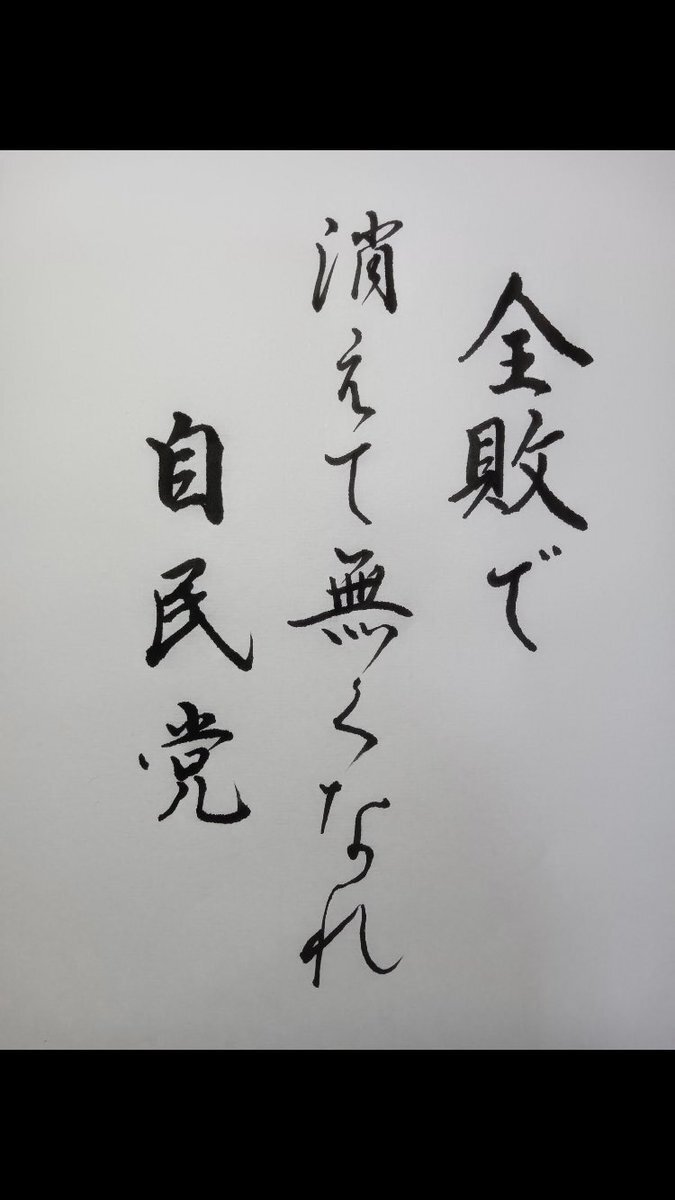 全敗で
消えて無くなれ
自民党